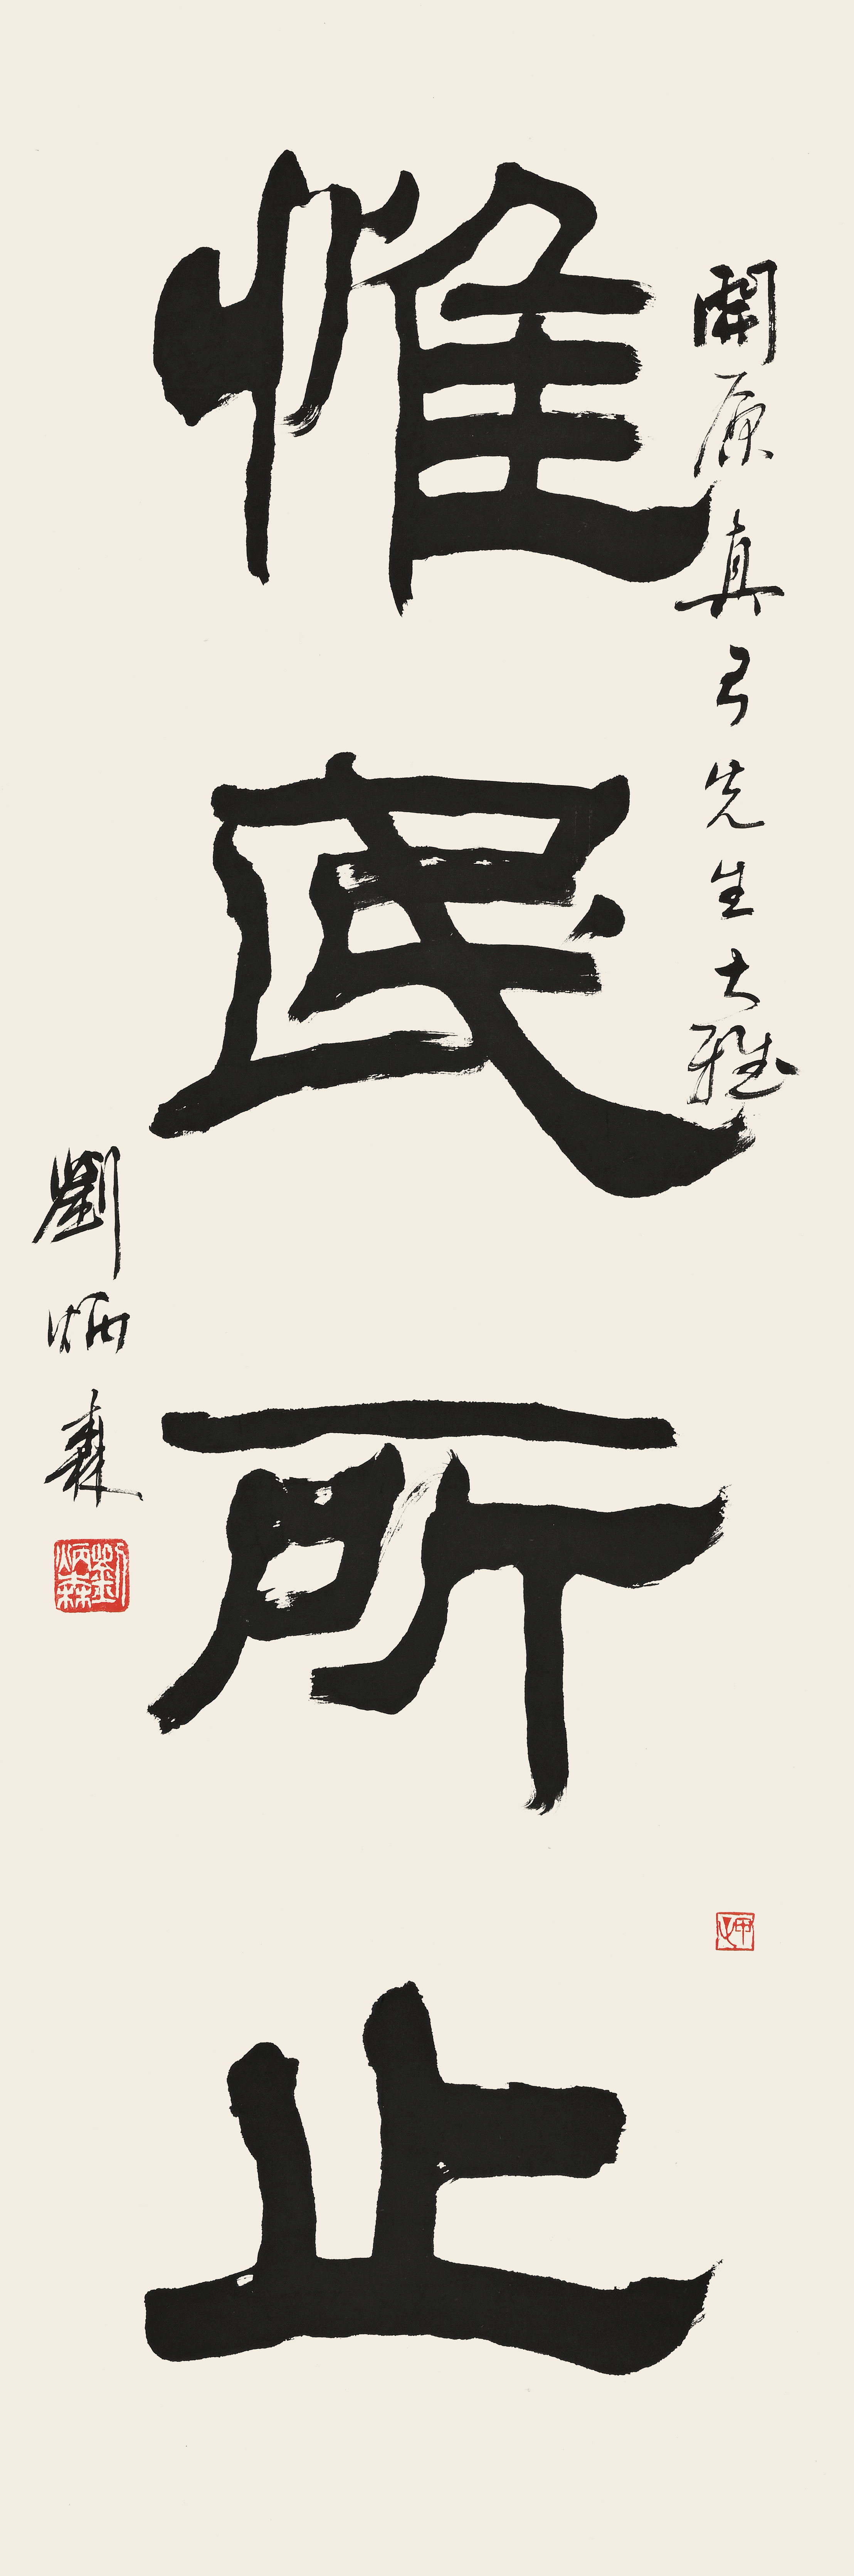 開原真弓先生大雅
惟民所止
劉炳森
劉炳森